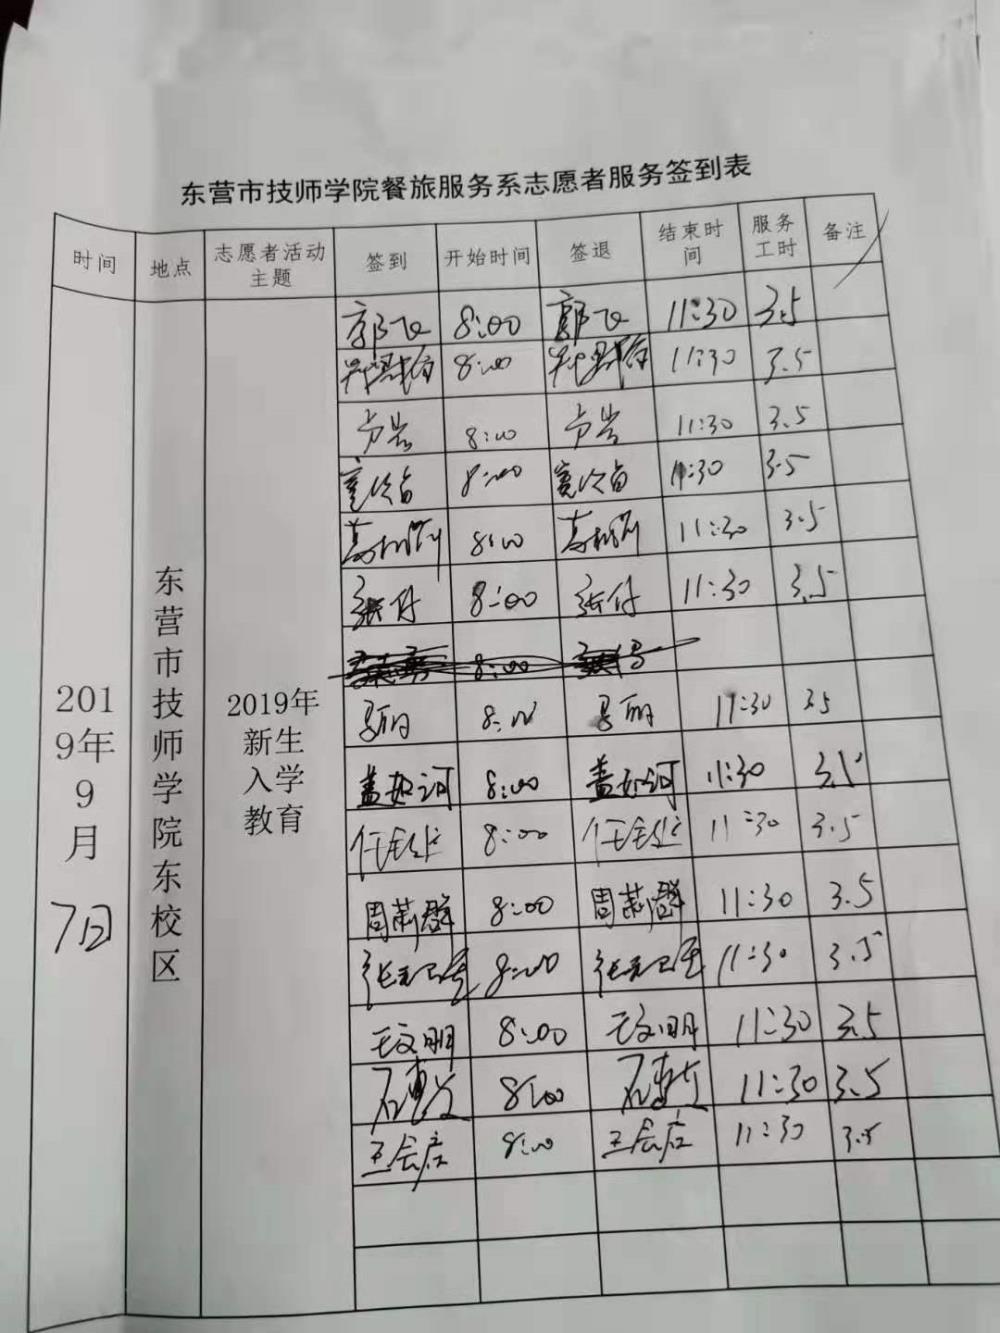 东营市技师学院餐旅服务系志愿者服务签到表
时间 地点 志愿者活动主题 签到 开始时间 签退 结束时间 服务工时 备注
2019年9月7日 东营市技师学院东校区 2019年新生入学教育
郭飞 8:00 郭飞 11:30 3.5
8:00 11:30 3.5
8:00 11:30 3.5
8:00 11:30 3.5
8:00 11:30 3.5
张付 8:00 张付 11:30 3.5
8:00
马丽 8:00 马丽 11:30 3.5
盖如河 8:00 盖如河 11:30 3.5
8:00 11:30 3.5
周莉群 8:00 周莉群 11:30 3.5
8:00 11:30 3.5
王文明 8:00 王文明 11:30 3.5
8:00 11:30 3.5
8:00 11:30 3.5